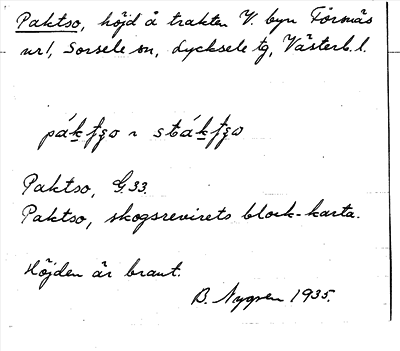 Paktso, höjd å trakten V. byn Fårnäs
nr1, Sorsele sn, Lycksele tg, Västerb. l.
Paktso, G.33.
Paktso, skogsrevirets block-karta.
Höjden är brant.
B. Nygren 1935.